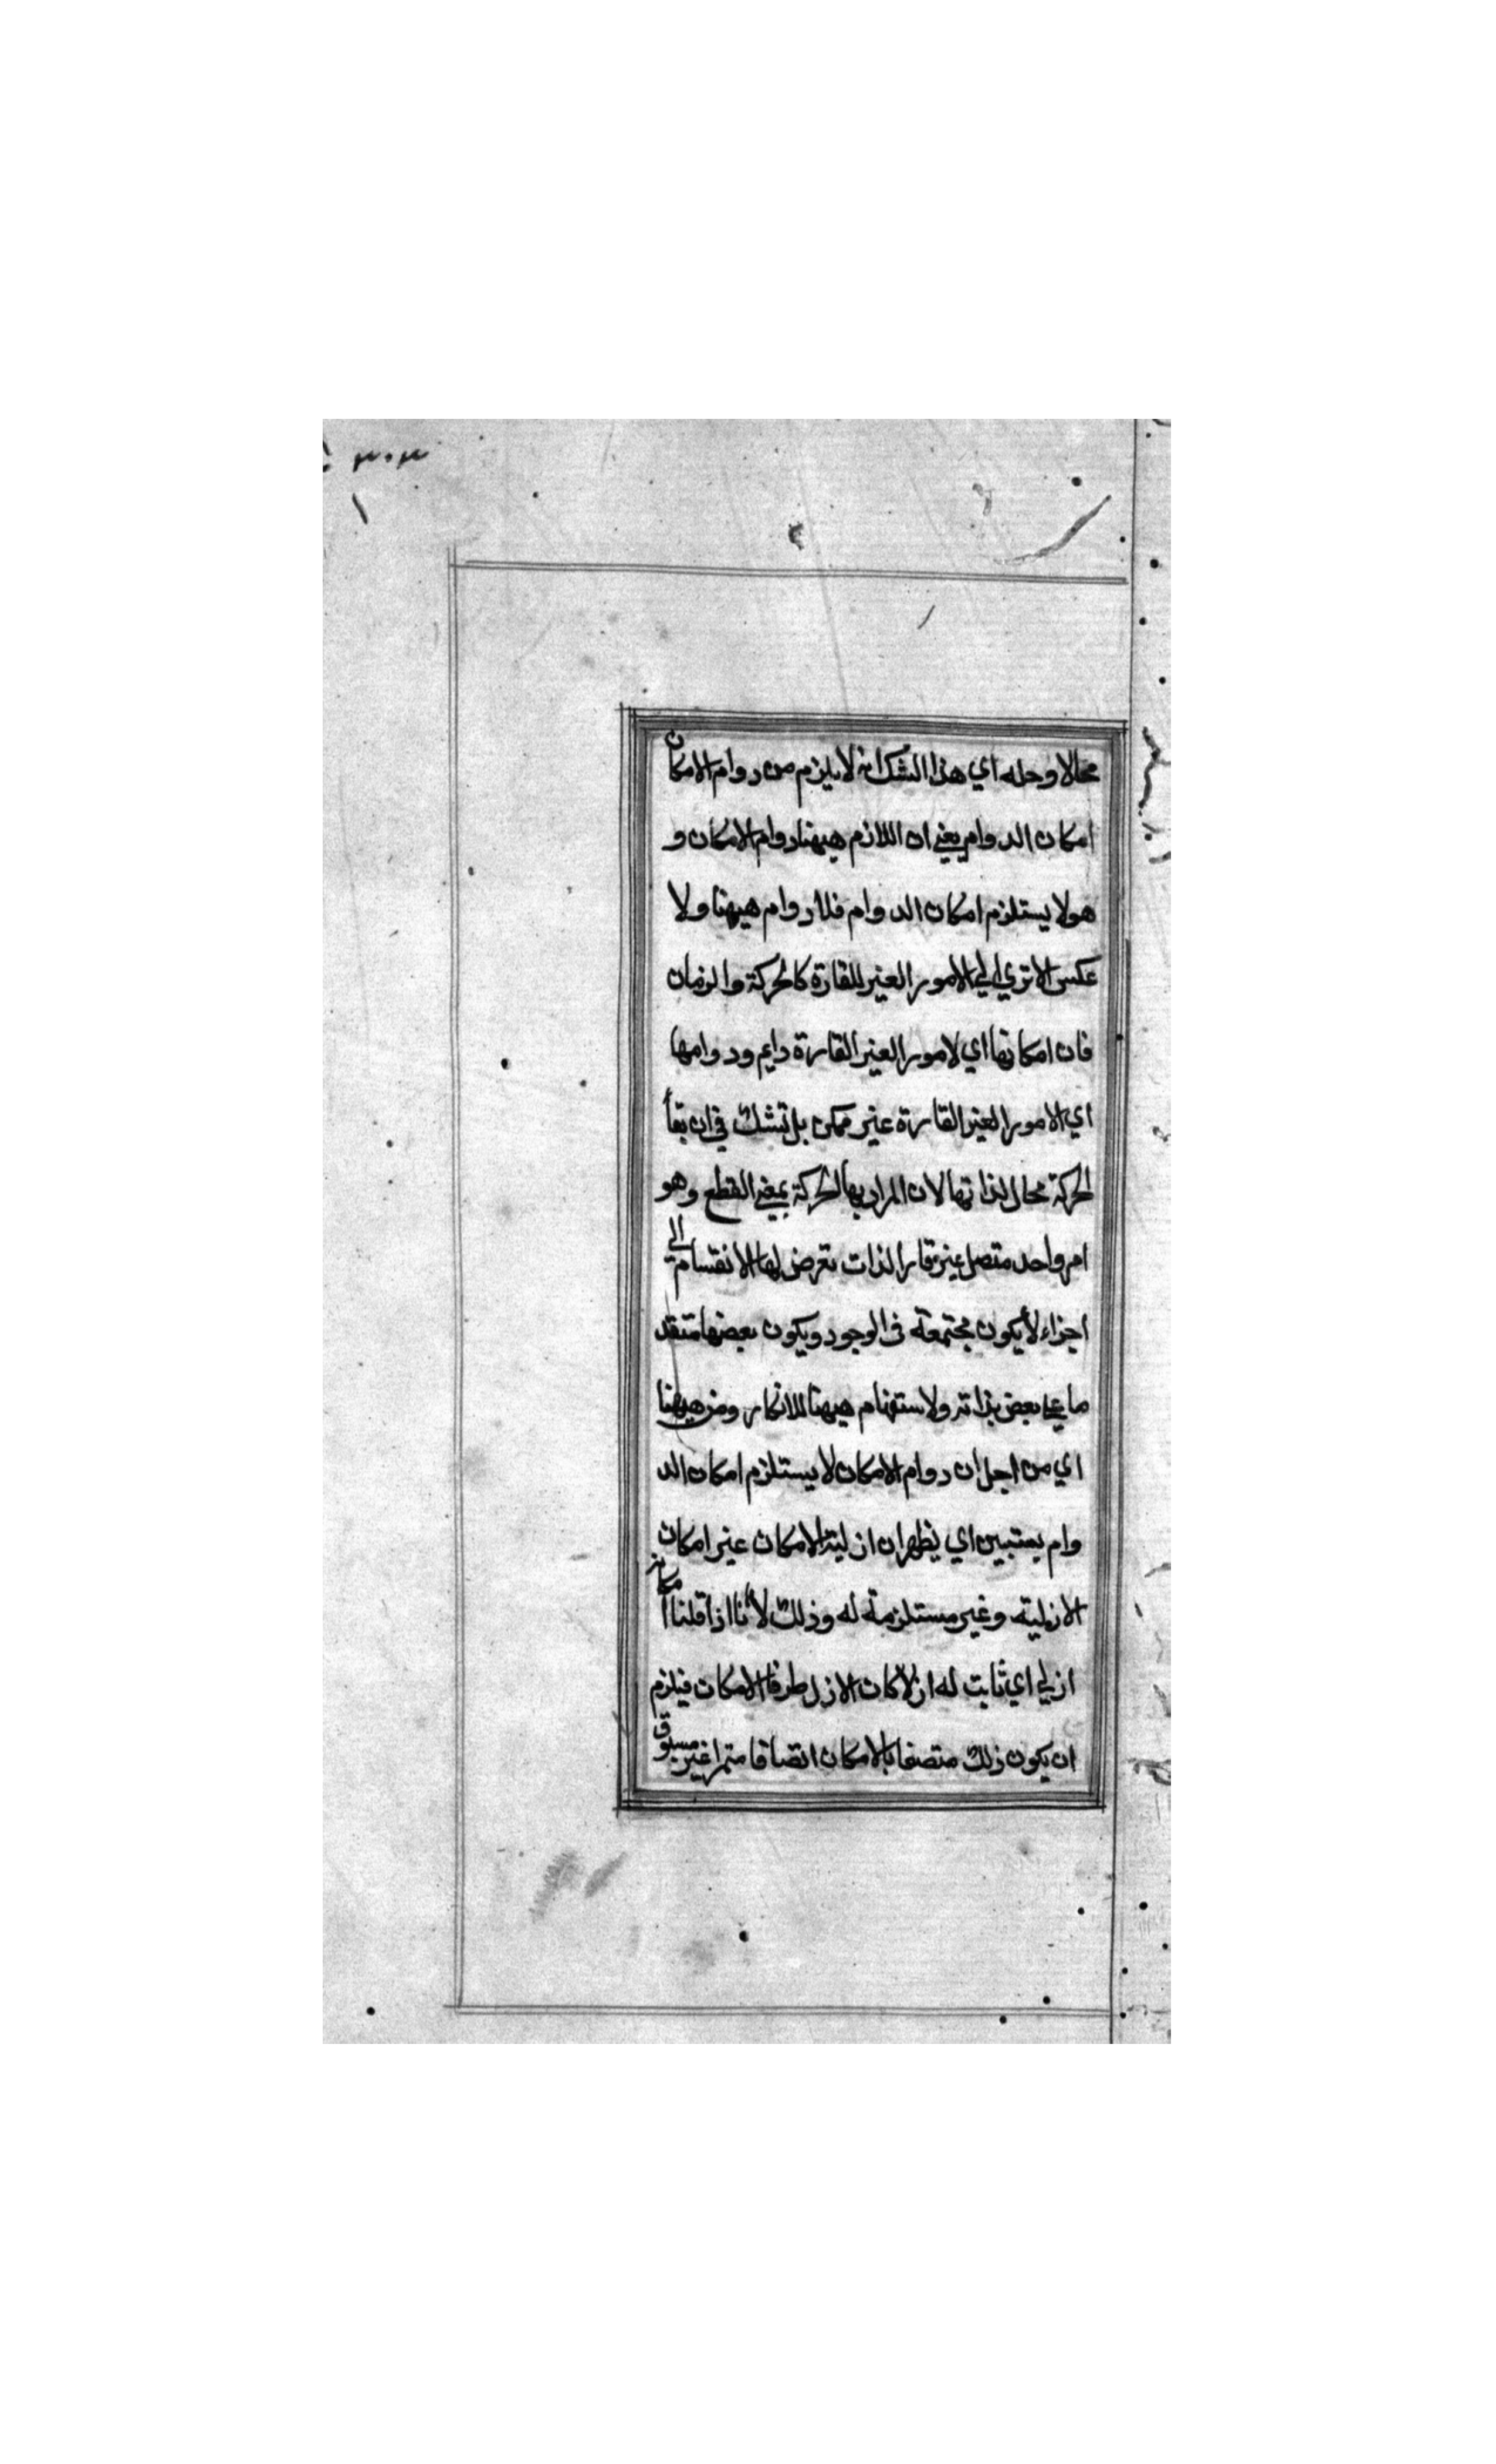 ٣٠٣
محالا وحله اي هذا الشك انه لا يلزم من دوام الامكان
امكان الدوام يعني ان اللازم هيهنا دوام الامكان و
هو لا يستلزم امكان الدوام فلا دوام هيهنا ولا
عكس الا تري الي الامور الغير القارة كالحركة والزمان
فان امكانها اي لامور الغير القارة دايم ودوامها
اي الامور الغير القارة غير ممكن بل تشك في ان بقأ
الحركة محال لذاتها لان المراد بها الحركة بمعني القطع وهو
امر واحد متصل غير قار الذات تعرض لها الانقسام الي
اجزاء لا يكون مجتمعة في الوجود ويكون بعضها متقد
ما علي بعض بذاته ولاستفهام هيهنا للانكار ومن هيهنا
اي من اجل ان دوام الامكان لا يستلزم امكان الد
وام يستبين اي يظهر ان ازلية الامكان غير امكان
الازلية وغير مستلزمة له وذلك لأنا اذا قلنا امكانه
ازلي اي ثابت له ازلا كان الازل ظرفا لامكان فيلزم
ان يكون ذلك متصفا بالامكان اتصافا مستمرا غير مسبوق